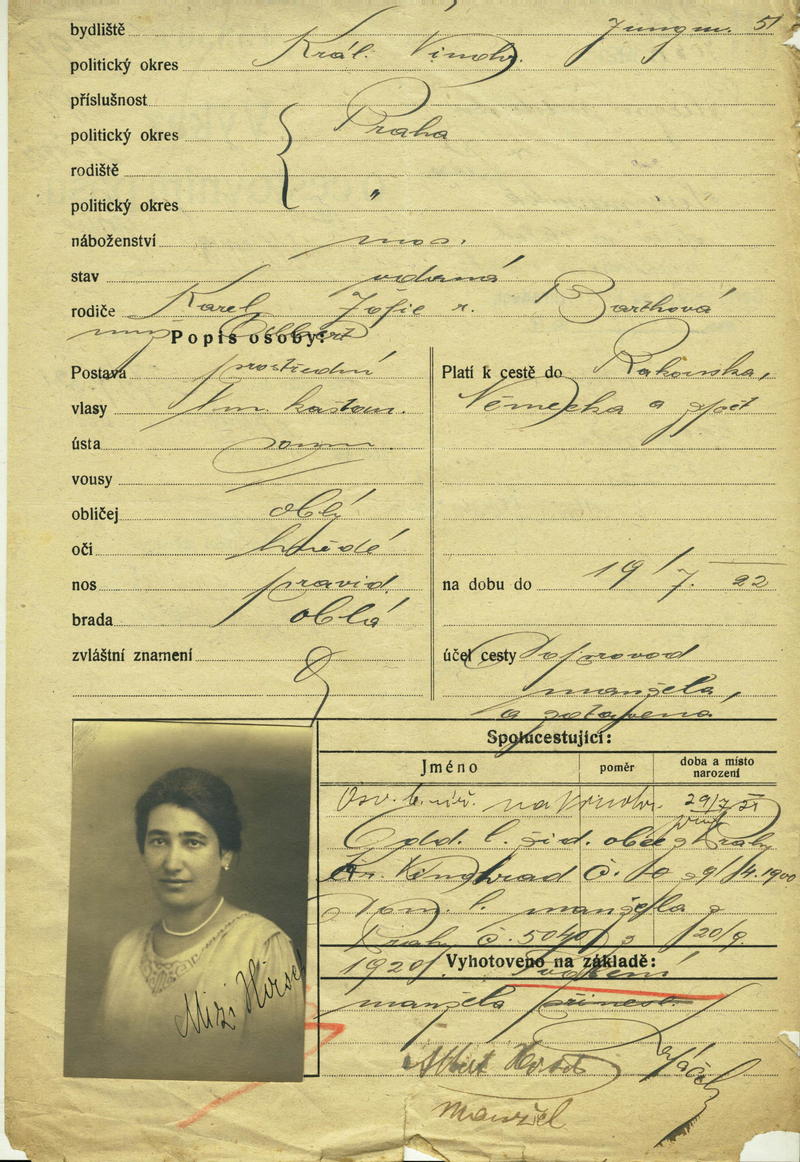 bydliště Jungm. 51
politický okres Král. Vinohr.
příslušnost
politický okres Praha
rodiště
politický okres "
náboženství mos.
stav vdaná
rodiče Karel Žofie r. Barthová
muž Albert
Popis osoby:
Postava prostřední
vlasy tm. kaštan.
ústa
vousy
obličej oblý
oči hnědé
nos pravid.
brada oblá
zvláštní znamení
Platí k cestě do Rakouska,
Německa a zpět
na dobu do 19/7. 22
účel cesty Doprovod
manžela,
a zotavená
Spolucestující:
Jméno poměr doba a místo narození
29/7 21
Odd. l. žid. obce z Prahy
Kr. Vinohrad č. 10 z 9/4. 1900
Dom. l. manžela z
Prahy č. 5040 z 20/9.
1920.
Vyhotoveno na základě:
manžela
Mizi Hirsch
Albert Hirsch
manžel